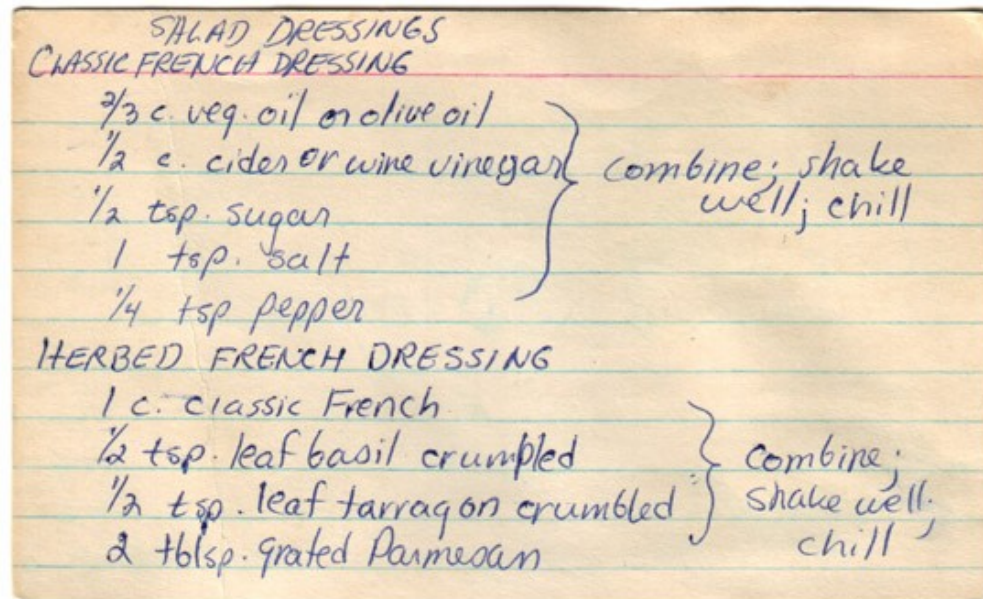 SALAD DRESSINGS
CLASSIC FRENCH DRESSING
2/3 c. veg. oil or olive oil
1/2 c. cider or wine vinegar
1/2 tsp. sugar
1 tsp. salt
1/4 tsp pepper
combine; shake
well; chill
HERBED FRENCH DRESSING
1 c. classic French
1/2 tsp. leaf basil crumpled
1/2 tsp. leaf tarragon crumbled
2 tblsp. grated Parmesan
combine;
shake well;
chill